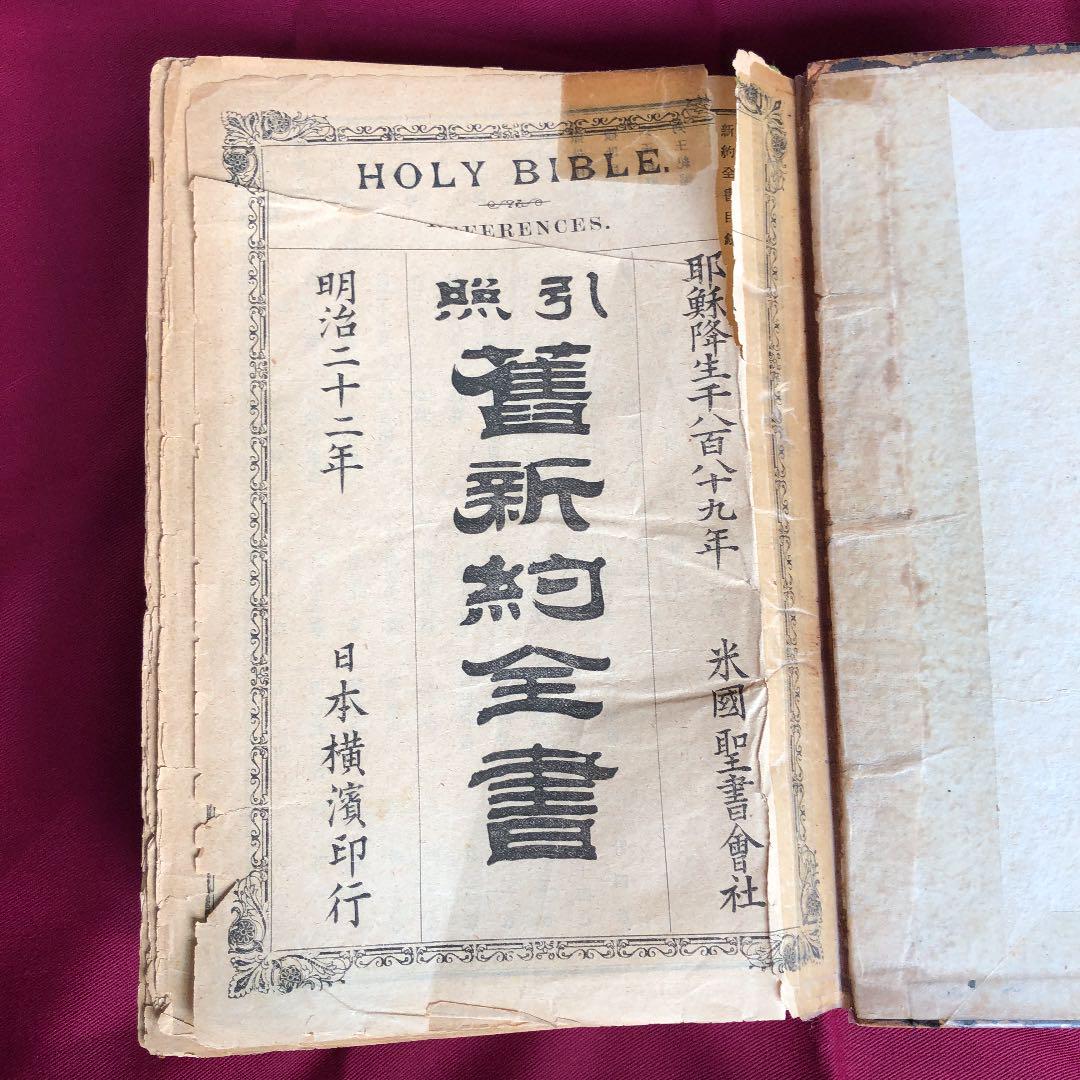 HOLY BIBLE.
REFERENCES.
耶穌降生千八百八十九年
米國聖書會社
引照
舊新約全書
明治二十二年
日本横濱印行
新約全書目錄